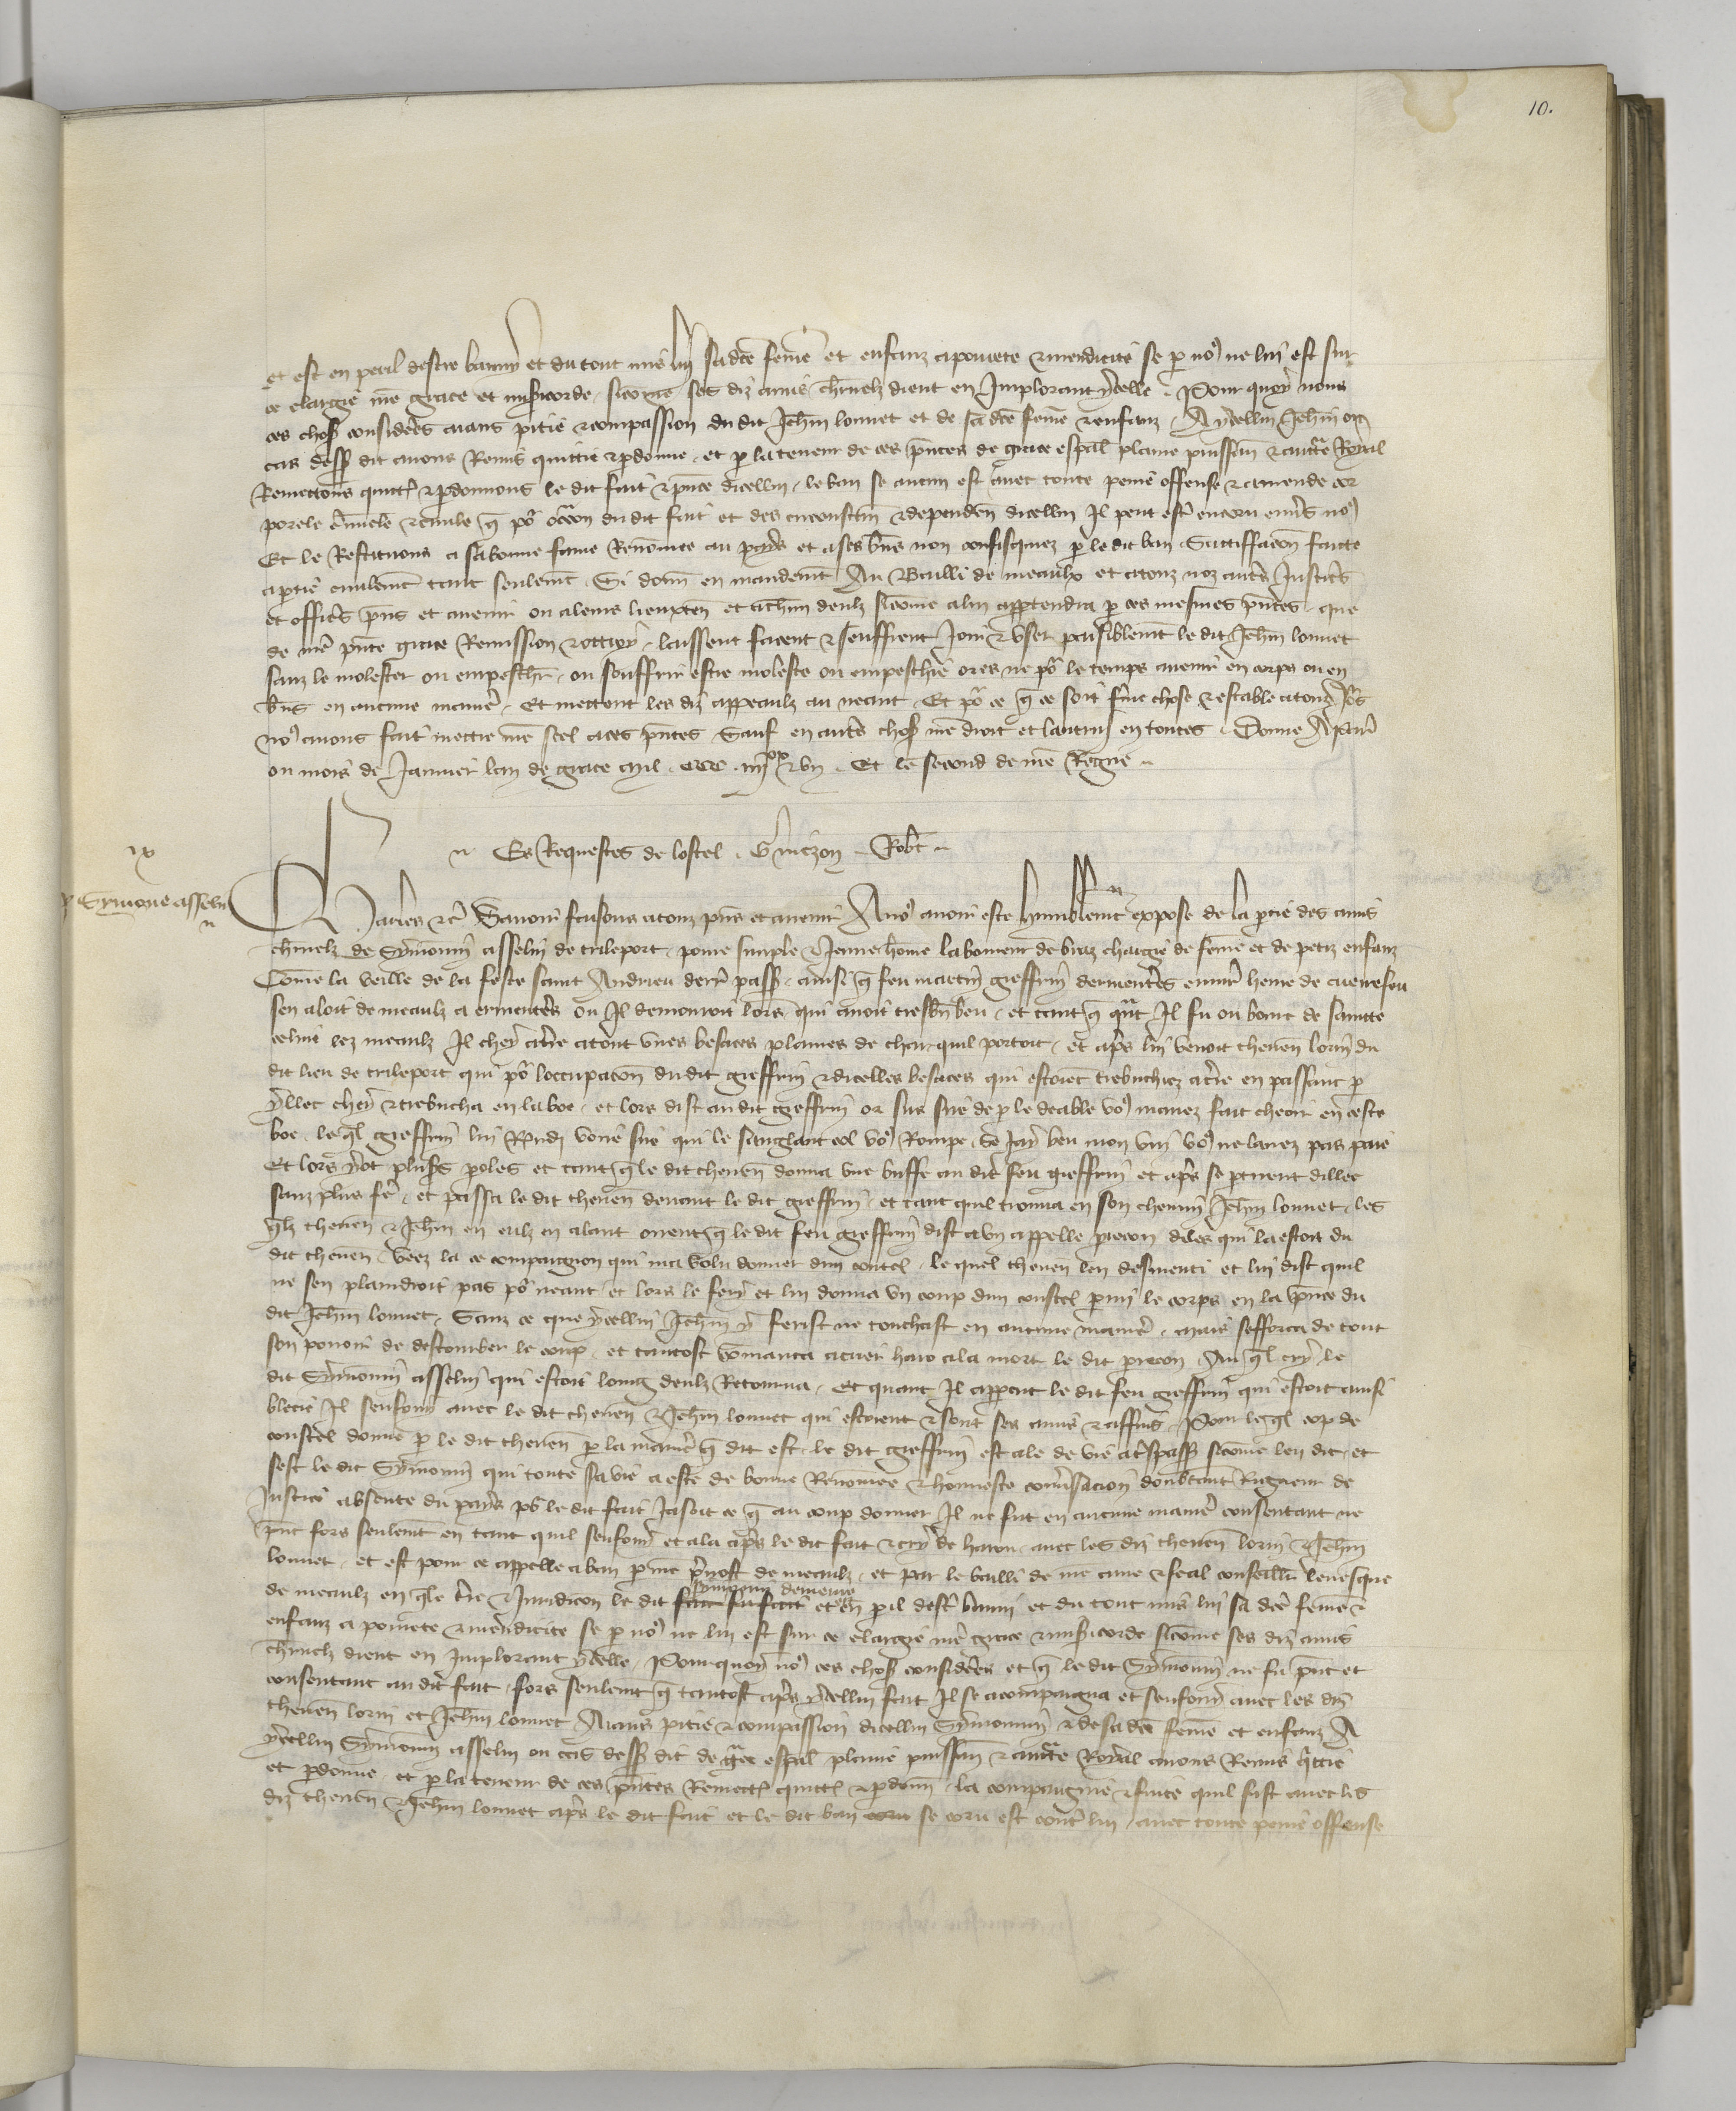 10.
et est en peril destre banny et du tout mis luy sa dce feme et enfanz a pouurete & mendicite se p no9 ne lui est sur
ce elargie nre grace et misicorde sicome ses diz amis charnelz dient en Implorant ycelle . Pour quoy nous
ces chos considerees aians pitie & compassion du dit Jehin lonuet et de sa dce feme & enfanz . A ycellui Jehin on
cas dess dit auons Remis quittie & pdonne . et p la teneur de ces pntes de grace espal plaine puissan & auctte Royal
Remettons quitt & pdonnons le dit fait & pnce dicellui . le ban se aucun est auec toute peine offense & amende cor
porele cminele & ciuile q por occon du dit fait et des circonstan & dependen dicellui Il peut estre encoru enuers no9
Et le Restituons a sa bonne fame Renomee au pays et a ses biens non confisquez p le dit ban Satiffacon faicte
a ptie ciuilemt tant seulemt Si donn en mandemt Au Bailli de meaulx et a touz noz autres Justiciers
et officiers pns et auenir ou a leurs lieuxten et a chun deulz sicome a lui apptendra p ces mesmes pntes que
de nre pnte grace Remission & ottroy . laissent facent & seuffrent Joir & vser paisiblemt le dit Jehin lonuet
sanz le molester ou empeschr . ou souffrir estre moleste ou empeschie ores ne por le temps auenir en corps ou en
biens en aucune maniere . Et mettent les diz appeaulz au neant . Et por ce q ce soit ferme chose & estable a touz Jors
no9 auons fait mettre nre scel a ces pntes Sauf en autres chos nre droit et lautruy en toutes . Donne A paris
ou mois de Januier lan de grace mil . ccc . iiij xx & vn . Et le second de nre Regne .
Es Requestes de lostel . G mezon . Robt .
ix
p Symone asselin
Charles &c Sauoir faisons a touz pns et auenir A no9 auoir este humblemt expose de la ptie des amis
charnelz de Symonin asselin de trileport . poure simple & Jeune home laboureur de braz chargie de feme et de petiz enfanz
Come la veille de la feste saint Andrieu derr pass . ainsi q feu martin gieffrin dermenters enuiron heure de cueurefeu
sen aloit de meaulz a ermenters ou Il demouroit lors qui auoit tresbn beu . et tant q qnt Il fu ou bout de saincte
celine lez meaulz Il chey a tre atout vnes besaces plaines de char quil portoit . et apres lui venoit theuen lorin du
dit lieu de trileport qui por loccupacon du dit gieffrin & dicelles besaces qui estoiet trebuchiez a tre en passant p
yllec chey & trebucha en la boe . et lors dist au dit gieffrin or sus sire de p le deable vo9 mauez fait cheoir en ceste
boe . le ql gieffrin lui Rndi voire sire qui le sanglant col vo9 Rompe . se Jay beu mon vin vo9 ne lauez pas paie
Et lors y ot pluss poles et tant q le dit theuen donna vne buffe au dit feu gieffrin et apres se ptirent dillec
sanz plus fere . et passa le dit theuen deuant le dit gieffrin . et tant quil trouua en son chemin Jehin lonuet . les
qlz theuen & Jehin en eulz en alant oirent q le dit feu gieffrin dist a vn appelle prcon diles qui la estoit du
dit theuen . veez la ce compaignon qui ma volu donner dun coutel . le quel theuen len desmenti et lui dist quil
ne sen plaindroit pas por neant . et lors le fery et lui donna vn coup dun coustel parmi le corps en la pnce du
dit Jehin lonuet . Sanz ce que ycellui Jehin y ferist ne touchast en aucune maniere . mais sefforca de tout
son pouoir de destourber le coup . et tantost commanca a crier haro a la mort le dit prcon . Au ql cry le
dit Symonin asselin qui estoit loing deulz Retourna . Et quant Il apparcut le dit feu gieffrin qui estoit ainsi
blecie Il senfoui auec le dit theuen & Jehin lonuet qui estoient & sont ses amis & affins . Pour leql cop de
coustel donne p le dit theuen p la maniere q dit est . le dit gieffrin est ale de vie a trespass sicome len dit . et
sest le dit Symonin qui toute sa vie a este de bonne Renomee & honneste conusacion doubtant Rigueur de
Justice absente du pays por le dit fait Jasoit ce q au coup donner Il ne fut en aucune maniere consentant ne
pnt fors seulemt en tant quil senfoui et ala apres le dit fait & cry de harou . auec les diz theuen lorin & Jehin
lonuet . et est pour ce appelle a ban p nre preuost de meaulz . et par le bailli de nre ame & feal conseillr leuesque
de meaulz en qle tre & Juridicon le dit Symonin demeure et en pil destre banni et du tout mis lui sa dce feme &
enfanz a pouurete & mendicite se p no9 ne lui est sur ce elargie nre grace & misicorde sicome ses diz amis
charnelz dient en Implorant ycelle . Pourquoy no9 ces chos considerees et q le dit Symonin ne fu pnt et
consentant au dit fait . fors seulemt q tantost apres ycellui fait Il se acompaigna et senfoui auec les diz
theuen lorin et Jehin lonuet Aians pitie & compassion dicellui Symonin & de sa dce feme et enfanz A
ycellui Symonin asselin ou cas dess dit de grace espal plaine puissan & auctte Royal auons Remis quittie
et pdonne . et p la teneur de ces pntes Remett quitt & pdonn . la compaignie & fuite quil fist auec les
diz theuen & Jehin lonuet apres le dit fait et le dit ban se coru est contre lui . auec toute peine offense